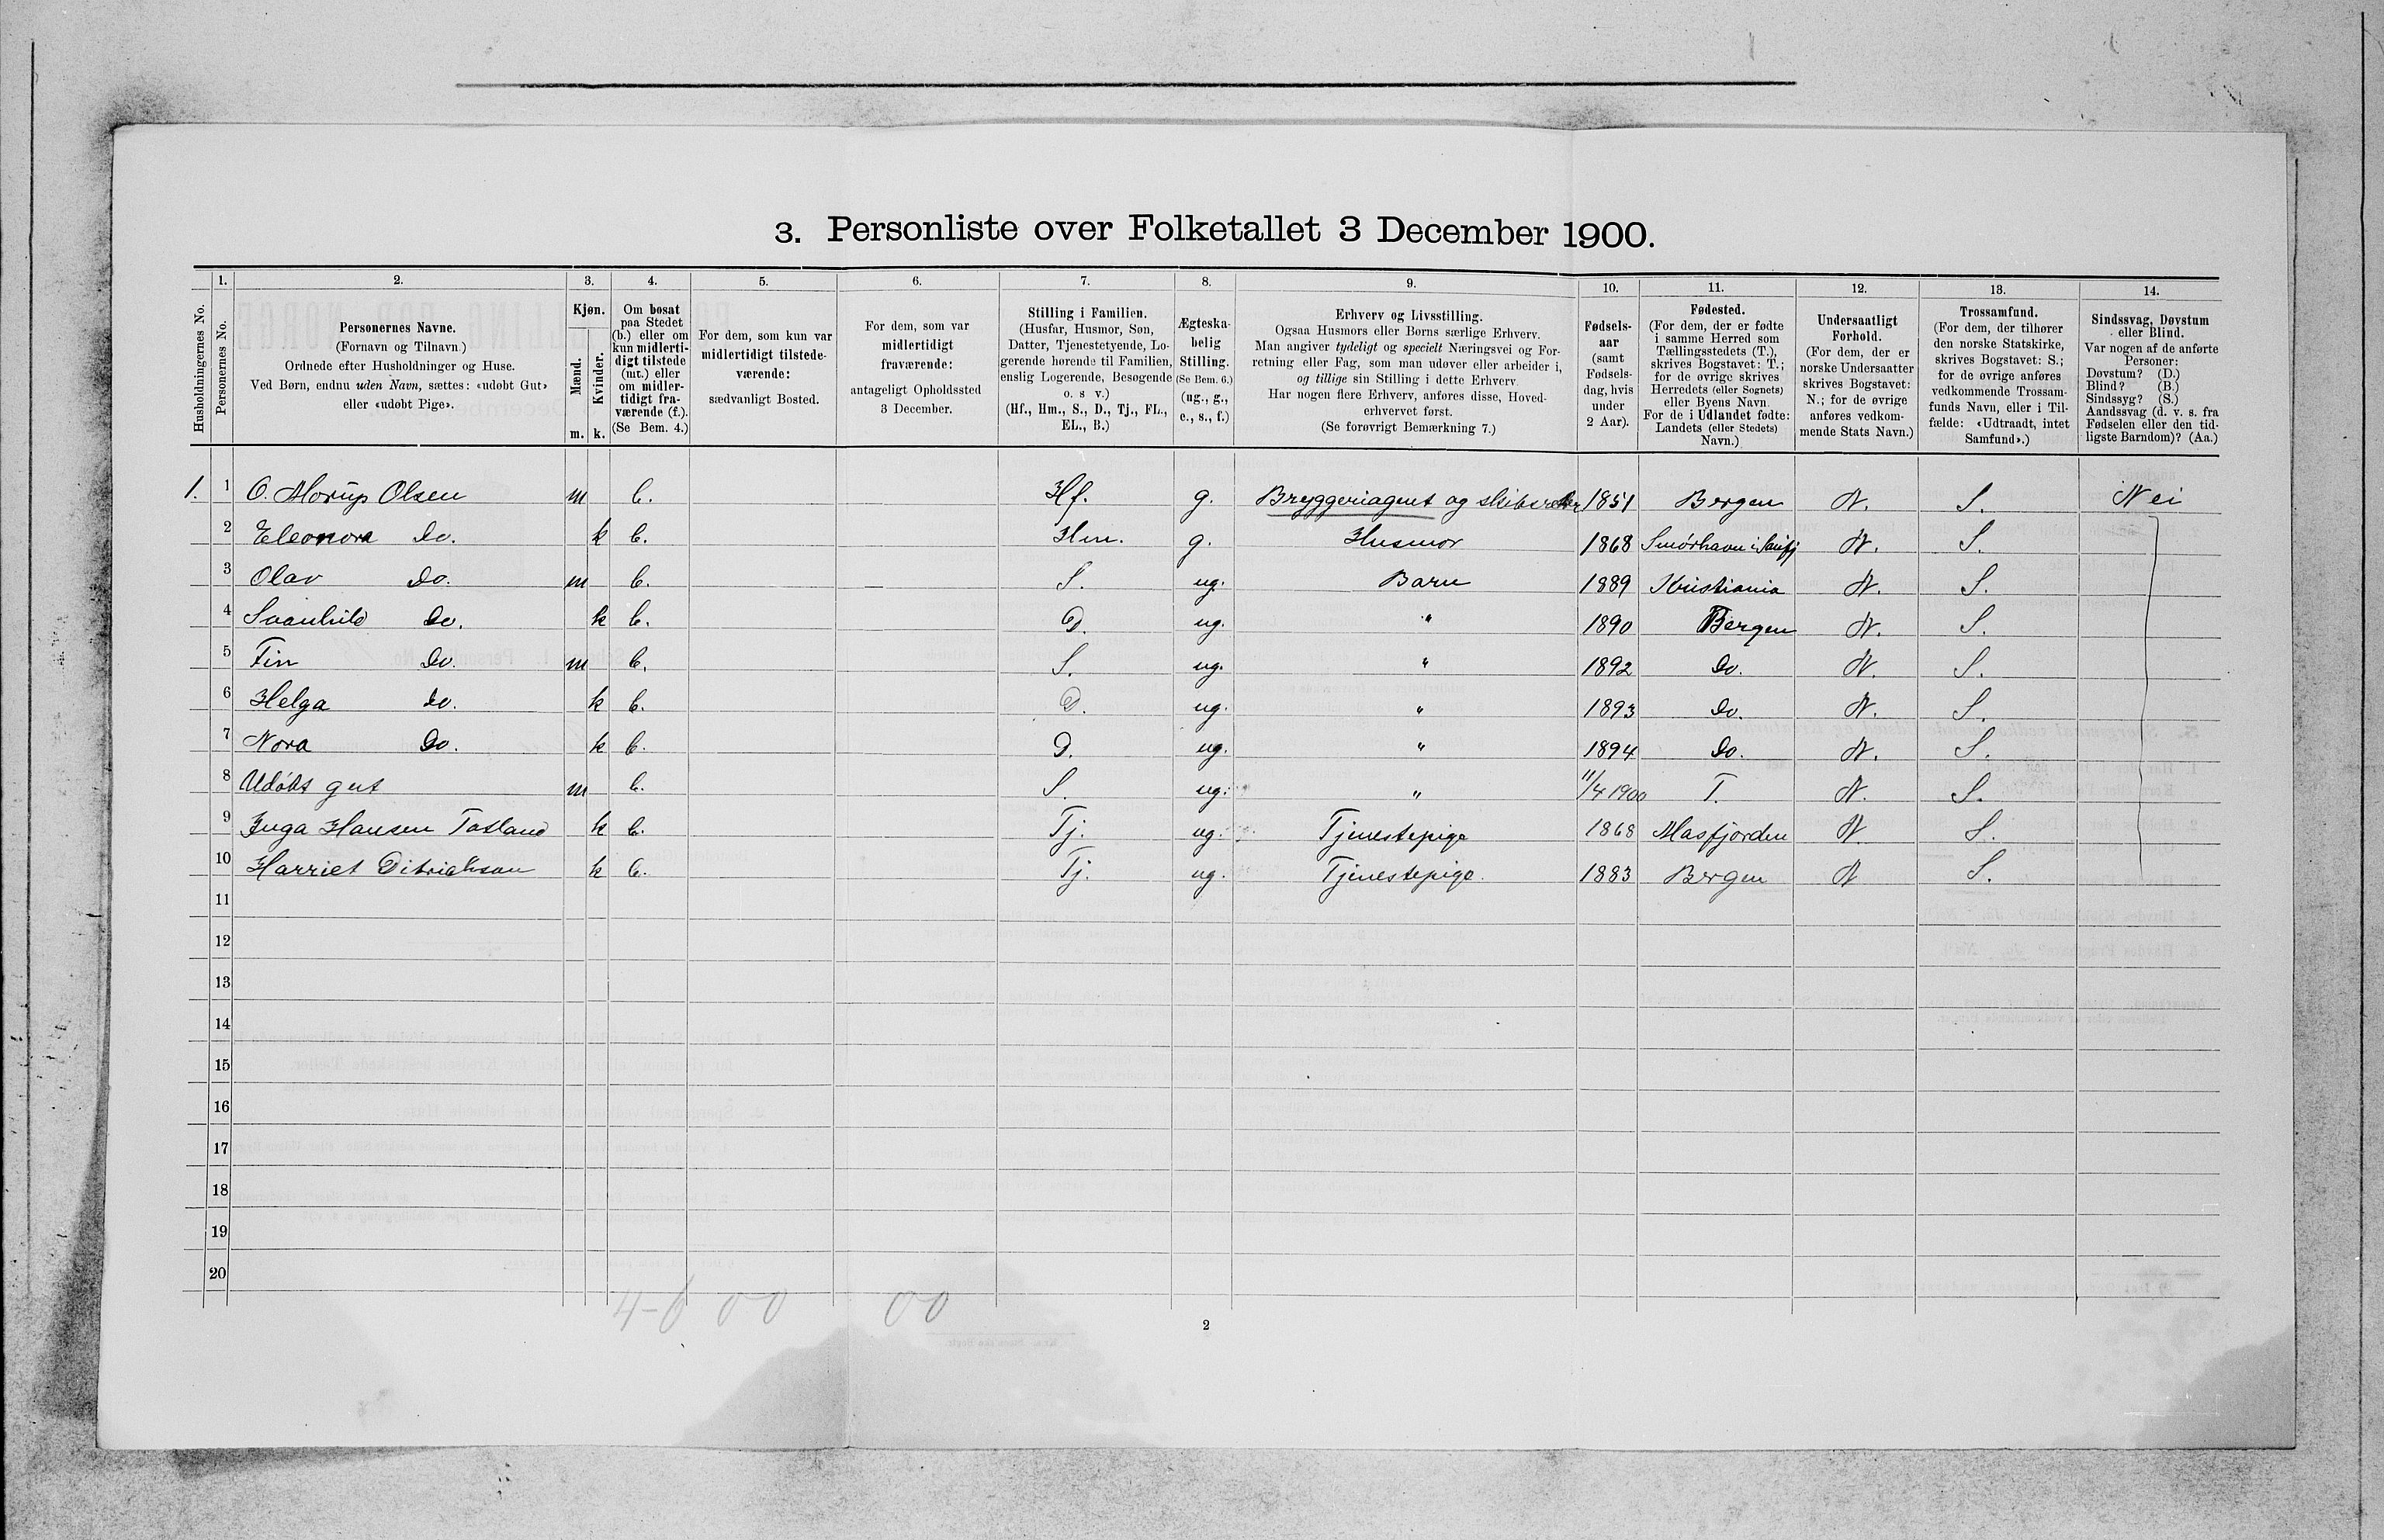 3. Personliste over Folketallet 3 December 1900.
Husholdningernes No.
1. Personernes No.
2. Personernes Navne.
(Fornavn og Tilnavn.)
Ordnede efter Husholdninger og Huse.
Ved Børn, endnu uden Navn, sættes: «udøbt Gut»
eller «udøbt Pige».
3. Kjøn.
Mænd. m.
Kvinder. k.
4. Om bosat
paa Stedet
(b.) eller om
kun midlerti-
digt tilstede
(mt.) eller
om midler-
tidigt fra-
værende (f.).
(Se Bem. 4.)
5. For dem, som kun var
midlertidigt tilstede-
værende:
sædvanligt Bosted.
6. For dem, som var
midlertidigt
fraværende:
antageligt Opholdssted
3 December.
7. Stilling i Familien.
(Husfar, Husmor, Søn,
Datter, Tjenestetyende, Lo-
gerende hørende til Familien,
enslig Logerende, Besøgende
o. s v.)
(Hf., Hm., S., D., Tj., FL.,
EL., B.)
8. Ægteska-
belig
Stilling.
(Se Bem. 6.)
(ug., g.,
e., s., f.)
9. Erhverv og Livsstilling.
Ogsaa Husmors eller Børns særlige Erhverv.
Man angiver tydeligt og specielt Næringsvei og For-
retning eller Fag, som man udøver eller arbeider i,
og tillige sin Stilling i dette Erhverv.
Har nogen flere Erhverv, anføres disse, Hoved-
erhvervet først.
(Se forøvrigt Bemærkning 7.)
10. Fødsels-
aar
(samt
Fødsels-
dag, hvis
under
2 Aar).
11. Fødested.
(For dem, der er fødte
i samme Herred som
Tællingsstedets (T.),
skrives Bogstavet: T.;
for de øvrige skrives
Herredets (eller Sognets)
eller Byens Navn.
For de i Udlandet fødte:
Landets (eller Stedets)
Navn.)
12. Undersaatligt
Forhold.
(For dem, der er
norske Undersaatter
skrives Bogstavet:
N.; for de øvrige
anføres vedkom-
mende Stats Navn.)
13. Trossamfund.
(For dem, der tilhører
den norske Statskirke,
skrives Bogstavet: S.;
for de øvrige anføres
vedkommende Trossam-
funds Navn, eller i Til-
fælde: «Udtraadt, intet
Samfund».)
14. Sindssvag, Døvstum
eller Blind.
Var nogen af de anførte
Personer:
Døvstum? (D.)
Blind? (B.)
Sindssyg? (S.)
Aandssvag (d. v. s. fra
Fødselen eller den tid-
ligste Barndom)? (Aa.)
1. 1 O. Morup Olsen m b. Hf. g. Bryggeriagent og skibsreder 1851 Bergen N. S. Nei
2 Eleonora do. k b. Hm. g. Husmor 1868 Smørhavn i N. S.
3 Olav do. m b. S. ug. Barn 1889 Kristiania N. S.
4 Svanhild do. k b. D. ug. " 1890 Bergen N. S.
5 Fin do. m b. S. ug. " 1892 do. N. S.
6 Helga do. k b. D. ug. " 1893 do. N. S.
7 Nora do. k b. D. ug. " 1894 do. N. S.
8 Udøbt gut m b. S. ug. " 11/4 1900 T. N. S.
9 Inga Hansen Tasland k b. Tj. ug. Tjenestepige 1868 Masfjorden N. S.
10 Harriet Ditrichson k b. Tj. ug. Tjenestepige. 1883 Bergen N S.
11
12
13
14
15
16
17
18
19
20
4-6 00 00
2